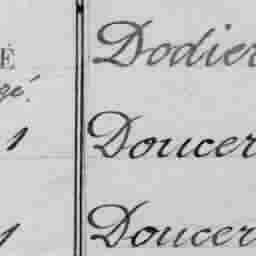 É Dodier
gé.
1 Doucer
1 Doucer